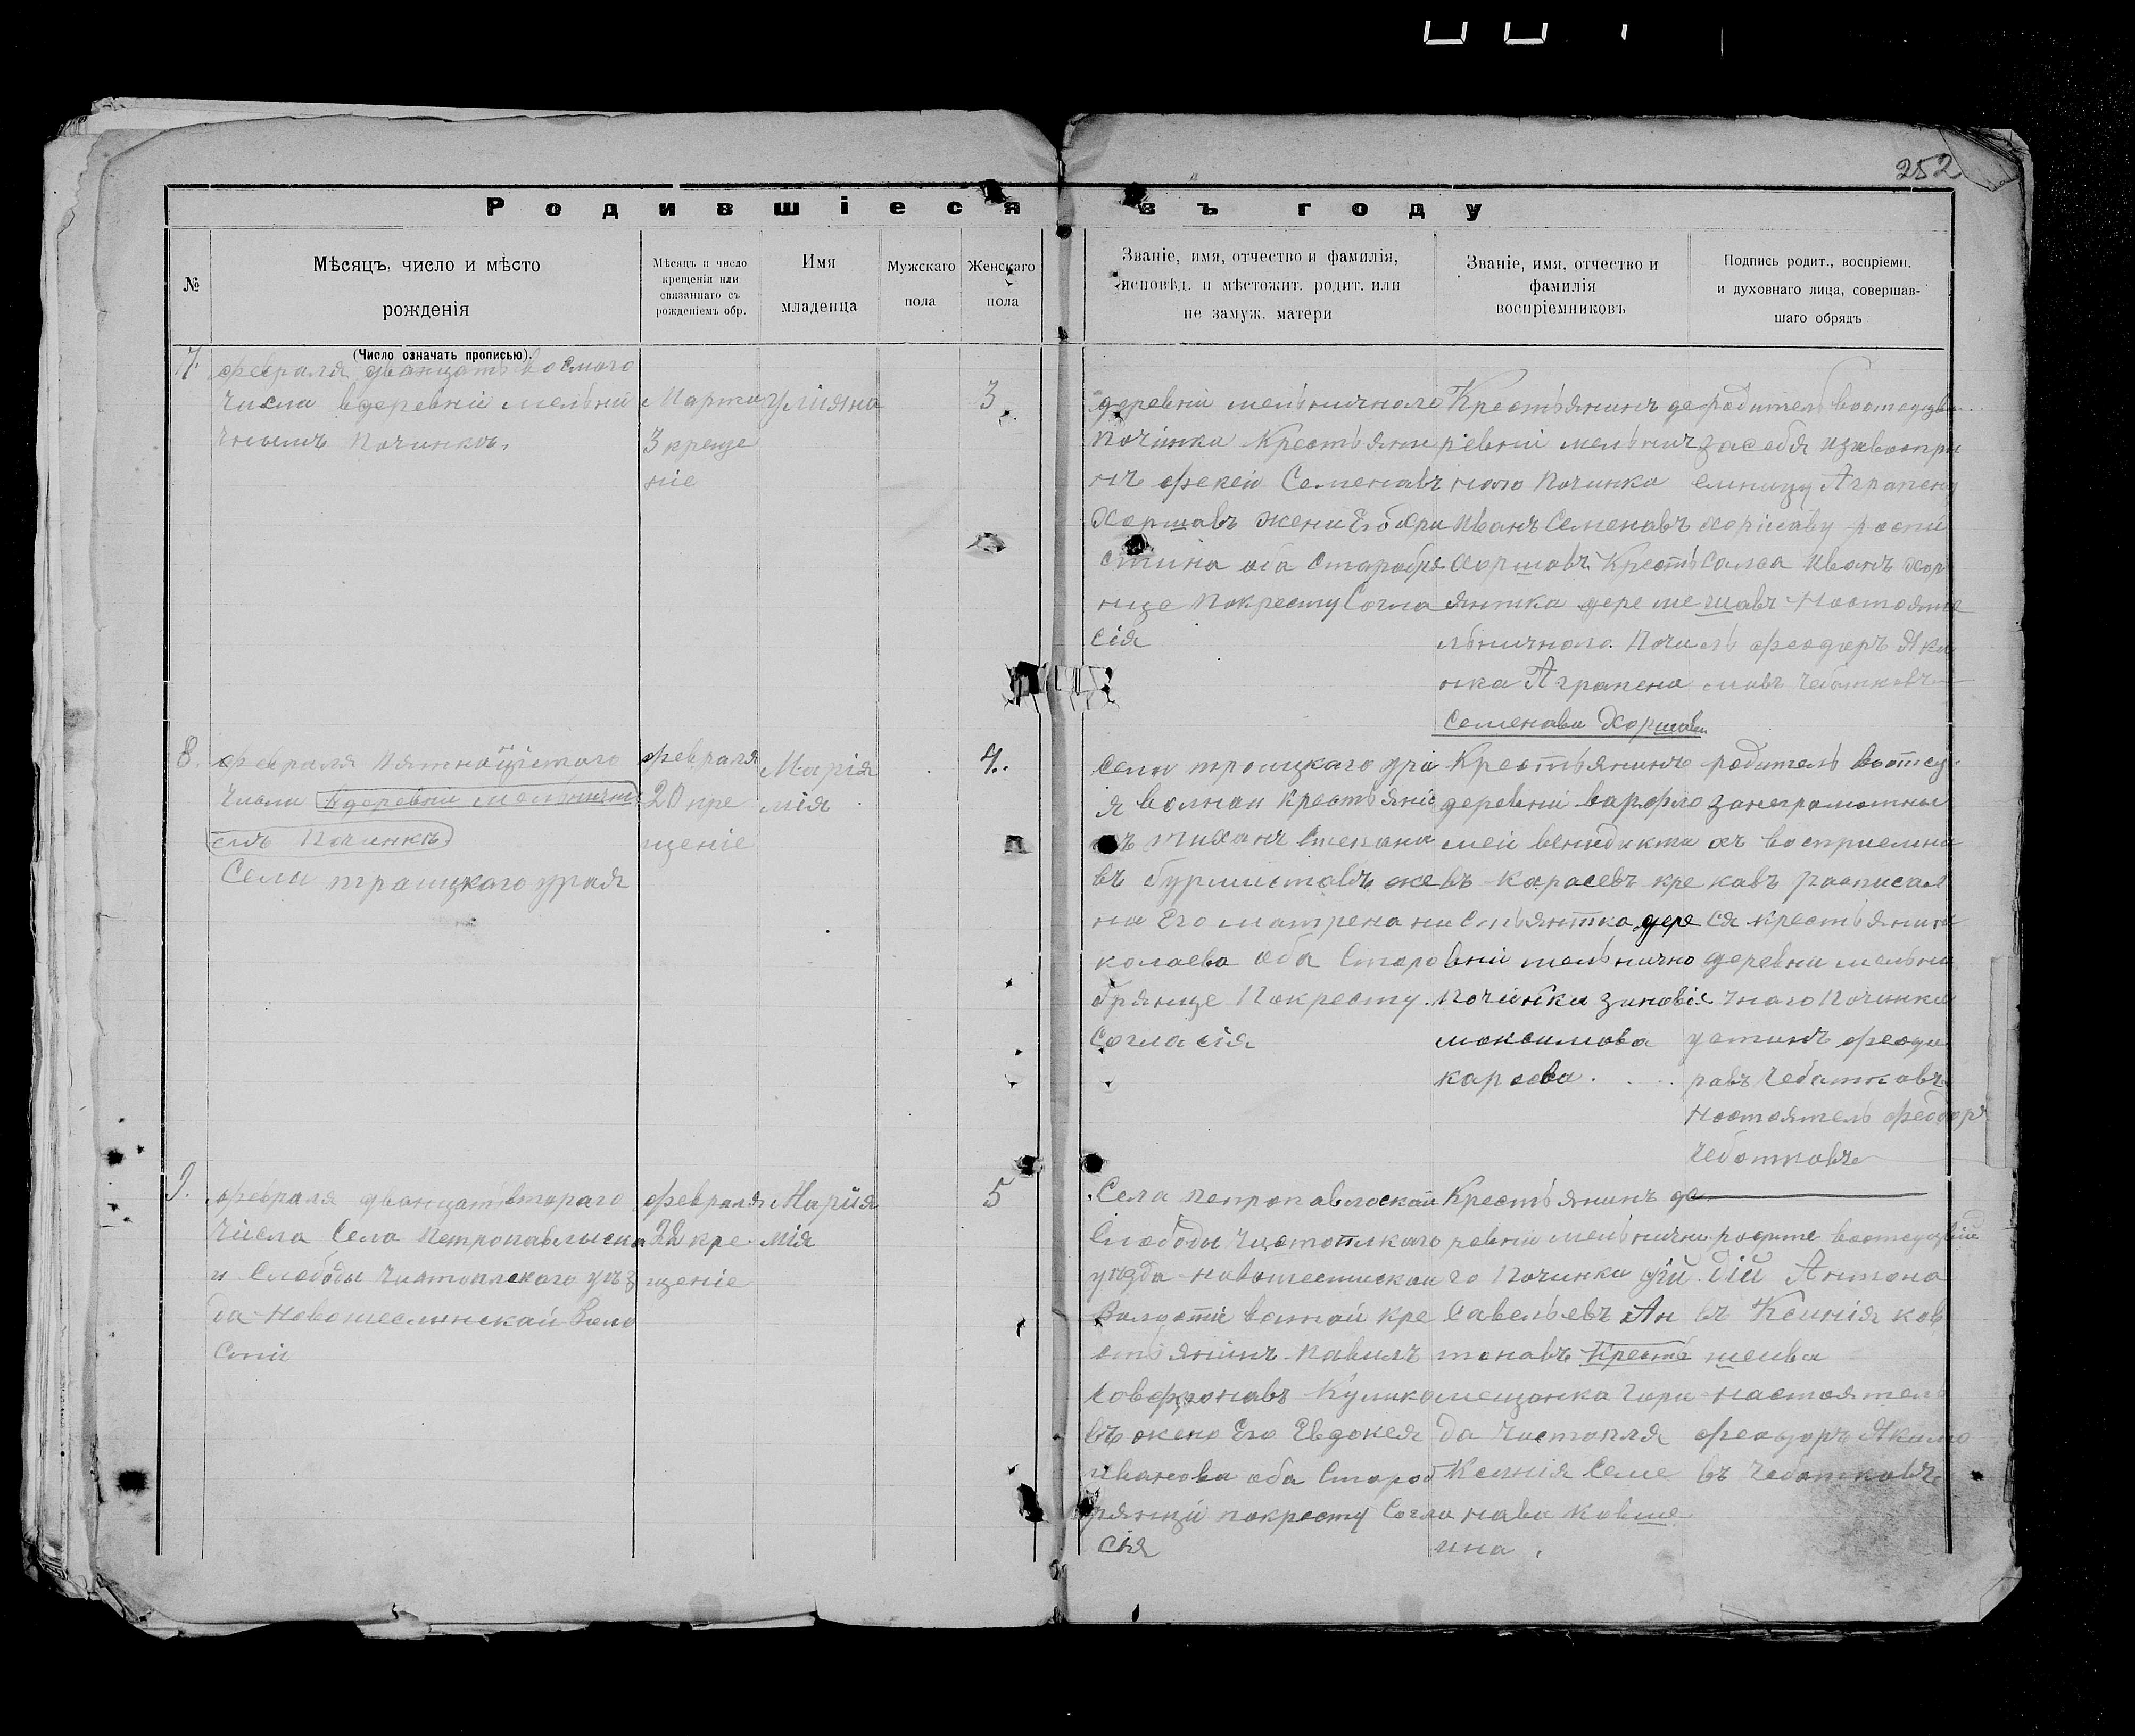 252
Родившіеся въ году
№
Мѣсяцъ, число и мѣсто
рожденія
(Число означать прописью).
Мѣсяцъ и число
крещенія или
связаннаго съ
рожденіемъ обр.
Имя
младенца
Мужскаго
пола
Женскаго
пола
Званіе, имя, отчество и фамилія,
исповѣд. и мѣстожит. родит. или
не замуж. матери
Званіе, имя, отчество и
фамилія
воспріемниковъ
Подпись родит., воспріемн.
и духовнаго лица, совершав-
шаго обрядъ
7.
февраля двандать восмого
числа вдеревніи мельни
чномъ Починкѣ.
Марта
3 креще
ніе
Улияна
3
деревни мельничного
Починка Крестьяни
нъ Фекей Семенавъ
Хоршавъ жена Его Хри
стина оба старобря
нце Покресту Согла
сія
Крестьянинъ де
ревний мельнич
ного Починка
Иванъ Семенавъ
Хоршавъ. Кресть
янтка дере ме
льничного. Почи
нка Аграпена
Семенава Хоршава
родитель
засебя изавоспри
емницу Аграпену
роспи
салса Иванъ Хор
шавъ Настояте
ль Феодоръ Яки
мавъ Чеботковъ
8.
февраля пятнацѣтого
числа вдеревни мельнични
омъ Починкѣ
Села траицкого урая
февраля
20 кре
щеніе
Марія
мія
4.
Села троицкаго ура
я волнаи крестьяни
нъ Тиханъ Степана
въ бурмистовъ же
на Его матрена ни
колаева оба Старо
брянце Покресту.
Согласія
Крестьянинъ
деревний варфло
меи венидикти
въ Карасевъ кре
стьянтка дере
вний мельнично
починка зиновіе
моксимова
карсева
родитель
занеграмотны
хъ восприемни
кавъ расписал
ся крестьянин
деревни мельни
чнаго Починка
устинъ феодо
равъ Чебатковъ
Настоятель Феодоръ
Чеботковъ
9.
февраля двандать второго
Числа Села Петропавлыска
и Слободы Чистопласкаго уѣз
да Новошесминскай Воло
сти
февраля
22 кре
щеніе
Марія
мія
5
Села петропавлоскай
Слободы Чистоплкаго
уѣзда новошесминскаи
Валости витой кре
стьянинъ Павилъ
Совфронавъ Кулико
въ жена Его Евдокея
иванова оба Староб
рянци покресту Согла
сія
Крестьянинъ де
ревни мельнични
го Починка
Савельевъ Ан
тонавъ Кресть
мещанка горо
да Чистопля
Ксинія Семе
нава Ковше
ина.
Антона
въ Ксинія Ков
шеива
настоятель
Феодоръ Якимо
въ Чеботковъ